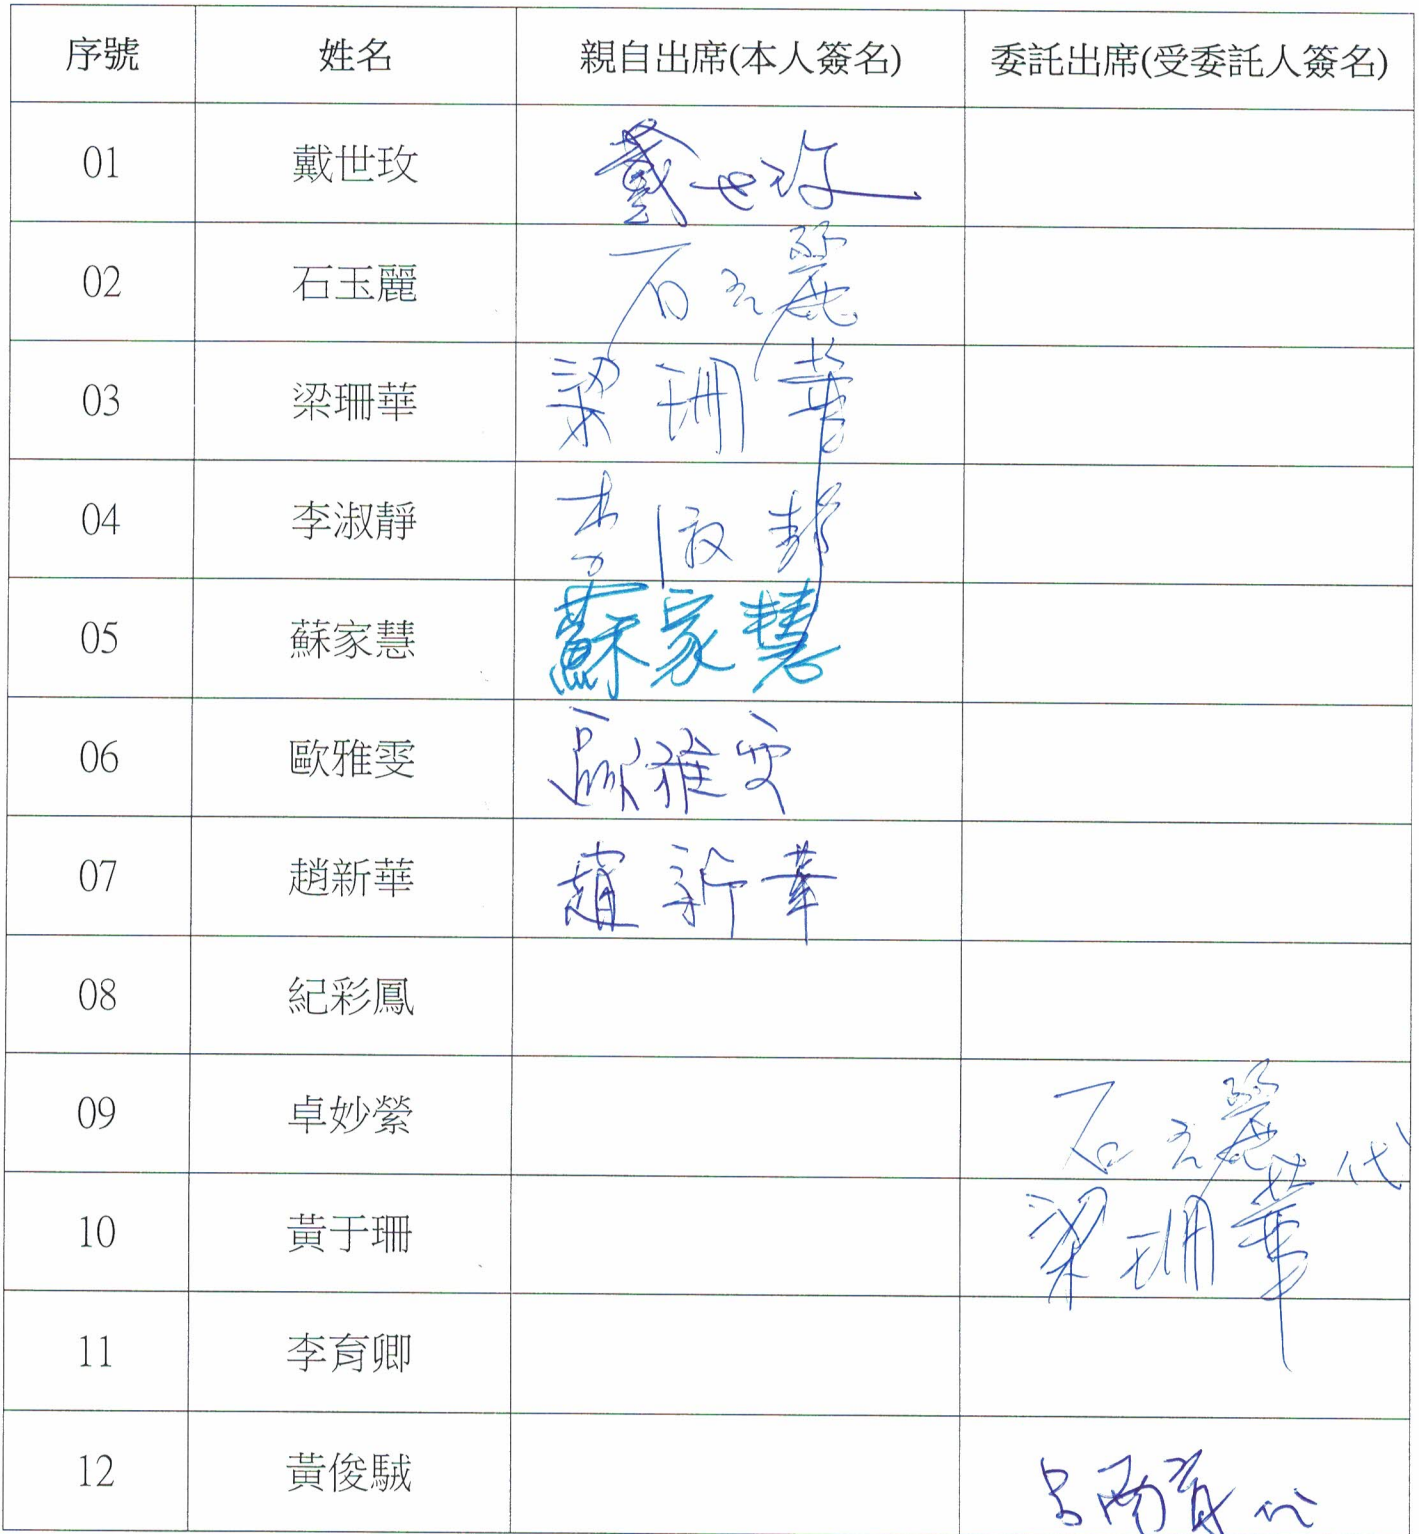 序號 姓名 親自出席(本人簽名) 委託出席(受委託人簽名)
01 戴世玫 戴世玫
02 石玉麗 石玉麗
03 梁珊華 梁珊華
04 李淑靜 李淑靜
05 蘇家慧 蘇家慧
06 歐雅雯 歐雅雯
07 趙新華 趙新華
08 紀彩鳳
09 卓妙縈 石玉麗代
10 黃于珊 梁珊華
11 李育卿
12 黃俊駥 代